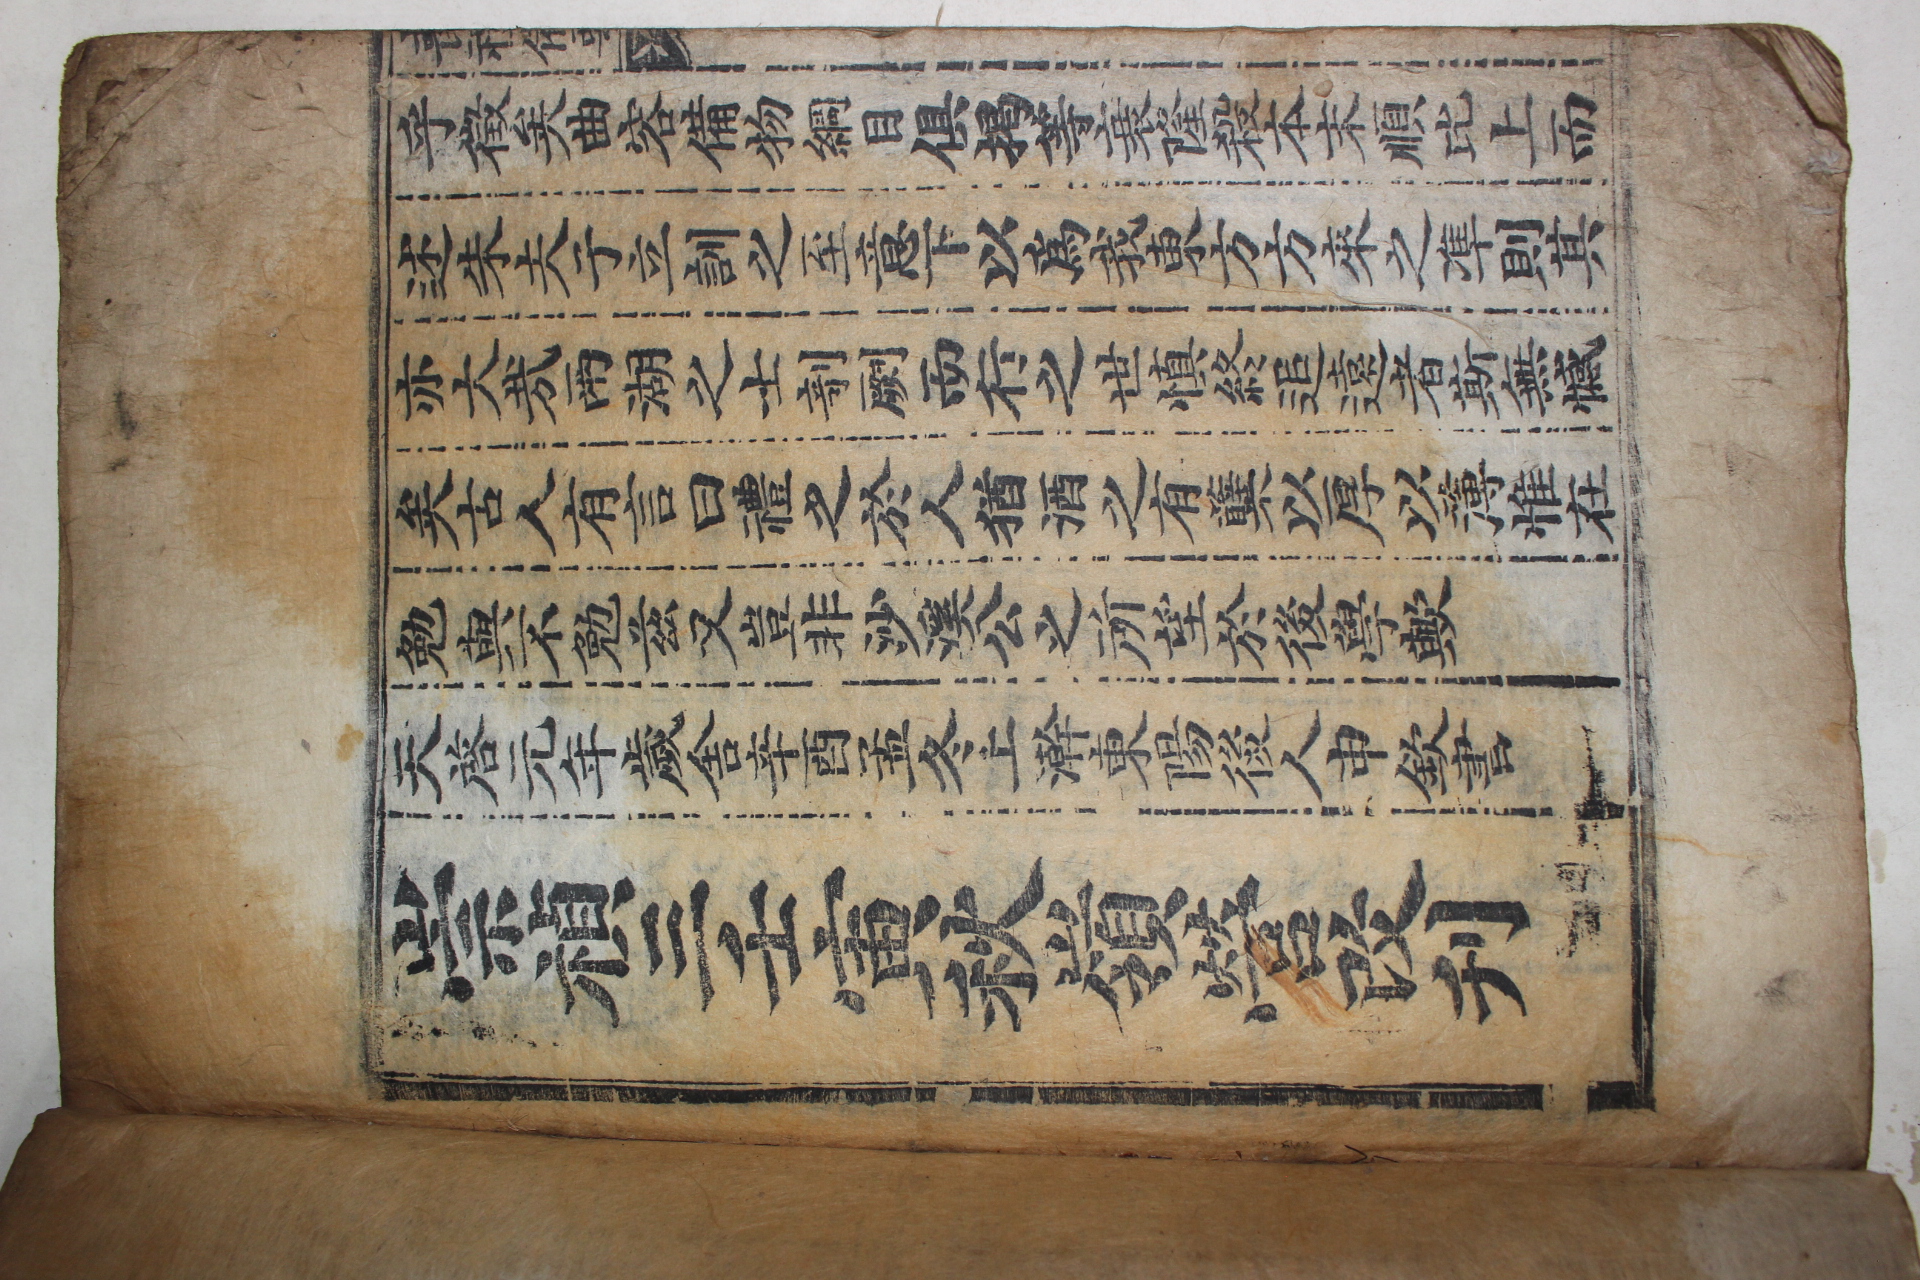 喪禮備要
乎徵矣曲容備物綱目俱揭等衰隆殺本末順比上而
述朱夫子立訓之至意下以爲我東方方來之準則其
亦大哉兩湖之士剞劂而行之世慎終追遠者斯無憾
矣古人有言曰禮之於人猶酒之有蘖以厚以薄惟在
勉與不勉茲又豈非沙溪公之所望於後學歟
天啓元年歲舍辛酉孟冬上澣東陽後人申欽書
崇禎三壬寅秋嶺營改刊